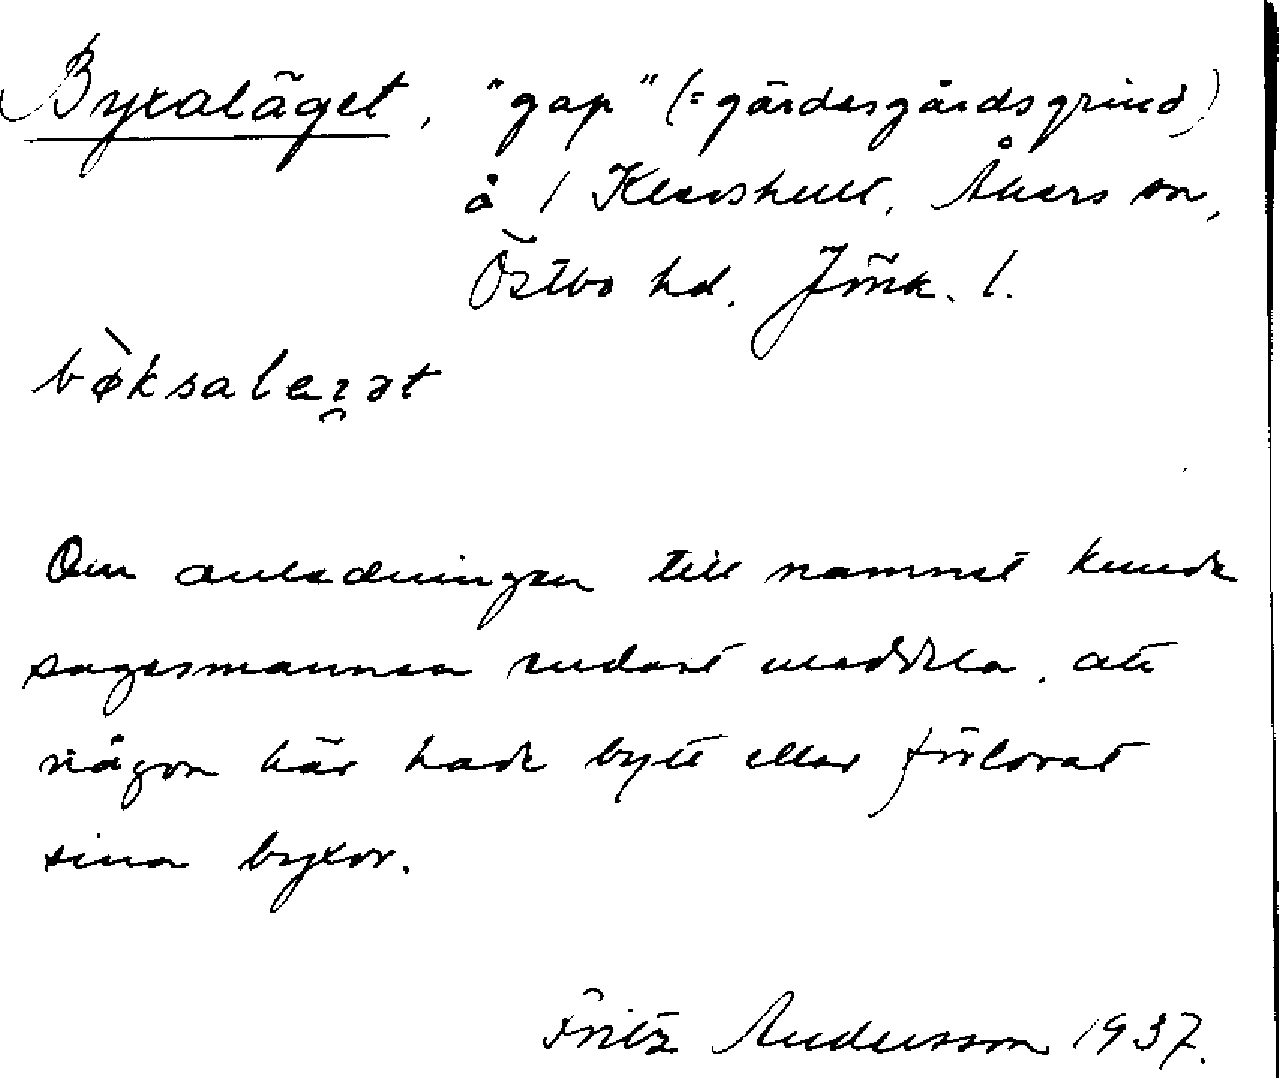 Byxaläget, "gap" (= gärdesgårdsgrind)
å 1 Klevshult, Åkers sn,
Östbo hd. Jönk. l.
bø̀ksalerət
Om anledningen till namnet kunde
sagesmannen endast meddela, att
någon här hade bytt eller förlorat
sina byxor.
Fritz Andersson 1937.